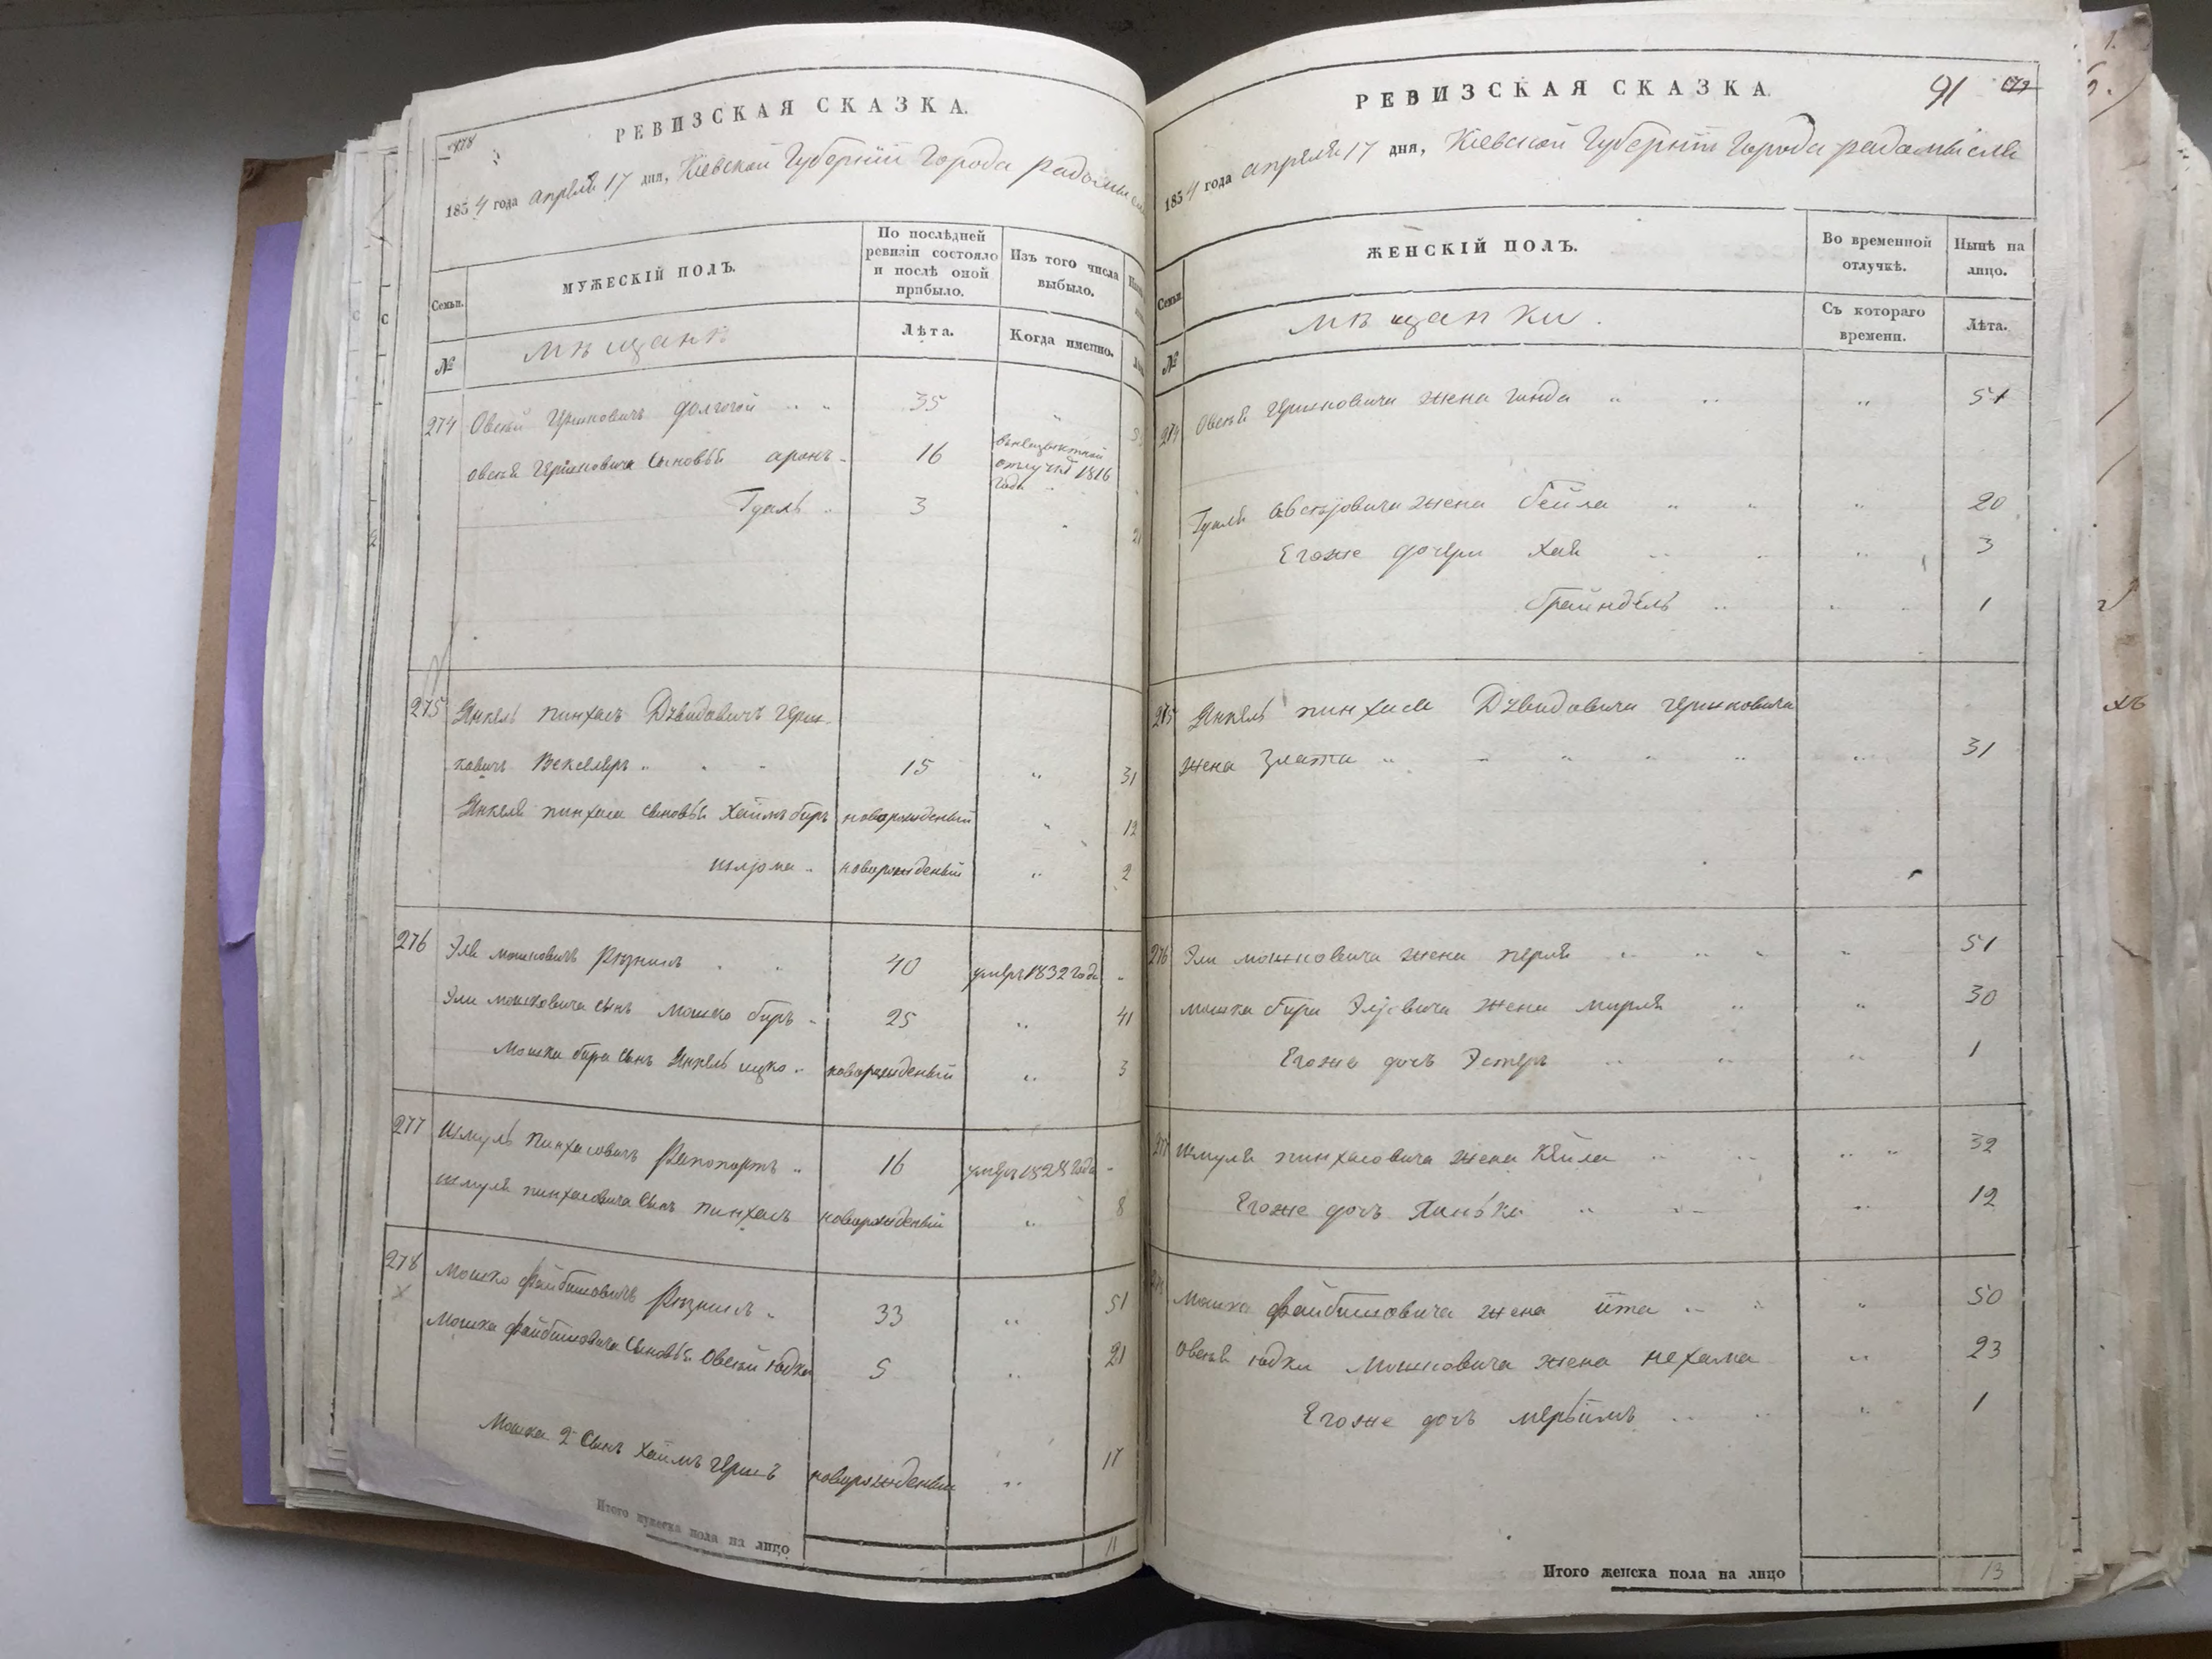 РЕВИЗСКАЯ СКАЗКА.
1854 года апреля 17 дня, Кіевской Губерніи Города радомысля
Семьи.
МУЖЕСКІЙ ПОЛЪ.
По послѣдней ревизіи состояло и послѣ оной прибыло.
Изъ того числа выбыло.
№
мѣщанѣ
Лѣта.
Когда именно.
274 Овсѣй Гершковичъ долгой 35
Овсѣя Гершковича сыновья аронъ 16 отлучкѣ 1816 года
Гдаль 3
275 Янкель пинхасъ Двидовичъ Герш-
ковичъ Векслеръ 15 31
Янкеля пинхаса сыновья Хаимъ беръ новорожденый 12
шлјома новорожденый 2
276 Эля мошковичъ Рѣзникъ 40 умеръ 1832 года
Эли мошковича сынъ мошко беръ 25 41
Мошка бера сынъ Янкель ицко новорожденый 3
277 Шмуль пинхасовичъ Рапопортъ 16 умеръ 1828 года
шмуля пинхасовича сынъ пинхасъ новорожденый 8
278 Мошко файбишовичъ Рѣзникъ 33 51
Мошка файбишовича сыновья Овсѣй юдко 5 21
Мошка 2 сынъ Хаимъ Гершъ новорожденый 17
Итого мужеска пола на лицо 11
РЕВИЗСКАЯ СКАЗКА.
91
1854 года апреля 17 дня, Кіевской Губерніи Города радомысля
Семьи.
ЖЕНСКІЙ ПОЛЪ.
Во временной отлучкѣ.
Нынѣ на лицо.
№
мѣщанки.
Съ котораго времени.
Лѣта.
274 Овсѣя Гершковича жена Гинда 51
Гдаля Овсѣјовича жена бейла 20
Егоже дочери Хая 3
брайндель 1
275 Янкель пинхаса Двидовича Гершковича
жена Злата 31
276 Эли мошковича жена перля 51
мошка бера Элјовича жена мирля 30
Егоже дочь Эстеръ 1
277 Шмуля пинхасовича жена Кейла 32
Егоже дочь Ханька 12
Мошка файбишовича жена ита 50
Овсѣя юдки Мошковича жена нехама 23
Егоже дочь мерьямъ 1
Итого женска пола на лицо 13